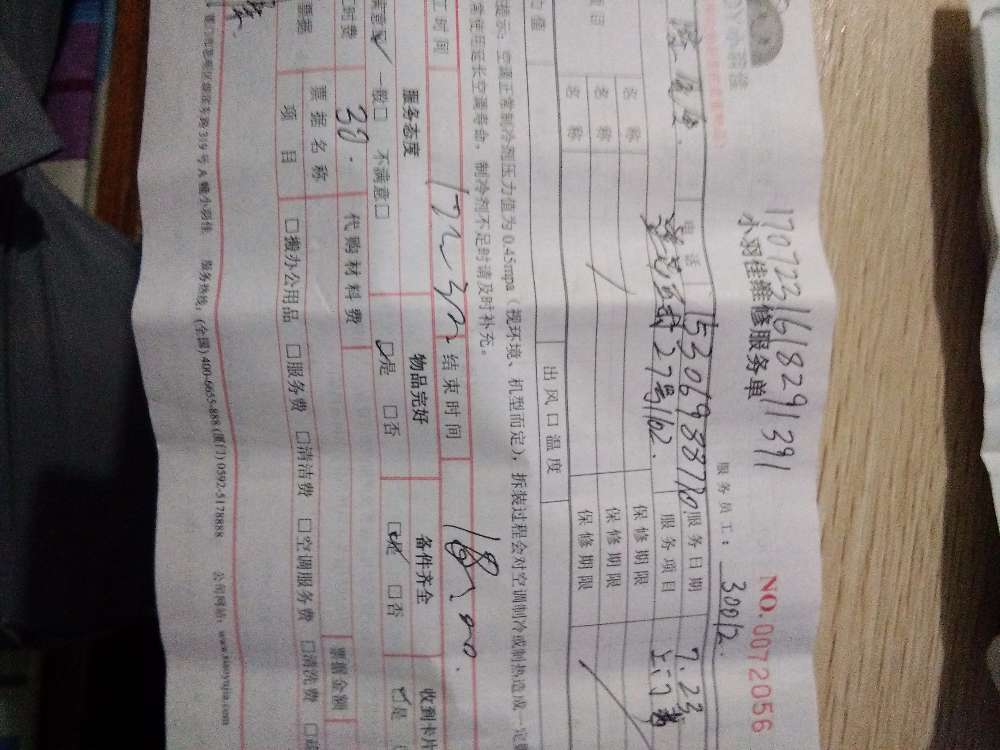 小羽佳
170723161829139
小羽佳维修服务单
NO. 0072056
服务员工: 30012
电话 15306988780 服务日期 7.23
27号1102. 服务项目 上门费
名称 保修期限
名称 保修期限
名称 保修期限
出风口温度
提示: 空调正常制冷剂压力值为0.45mpa (视环境、机型而定), 拆装过程会对空调制冷或制热造成一定
常使用延长空调寿命, 制冷剂不足时请及时补充。
工时间 17:30 结束时间 18:00
服务态度 物品完好 备件齐全 收到卡片
满意☑ 一般□ 不满意□ ☑是 □否 ☑是 □否 ☑是
时费 30. 代购材料费
票据 票据名称 票据金额
项目 □搬办公用品 □服务费 □清洁费 □空调服务费 □清洗费
319号A幢小羽佳 服务热线: (全国) 400-6655-888 (厦门) 0592-5178888 公司网站: www.xiaoyujia.com